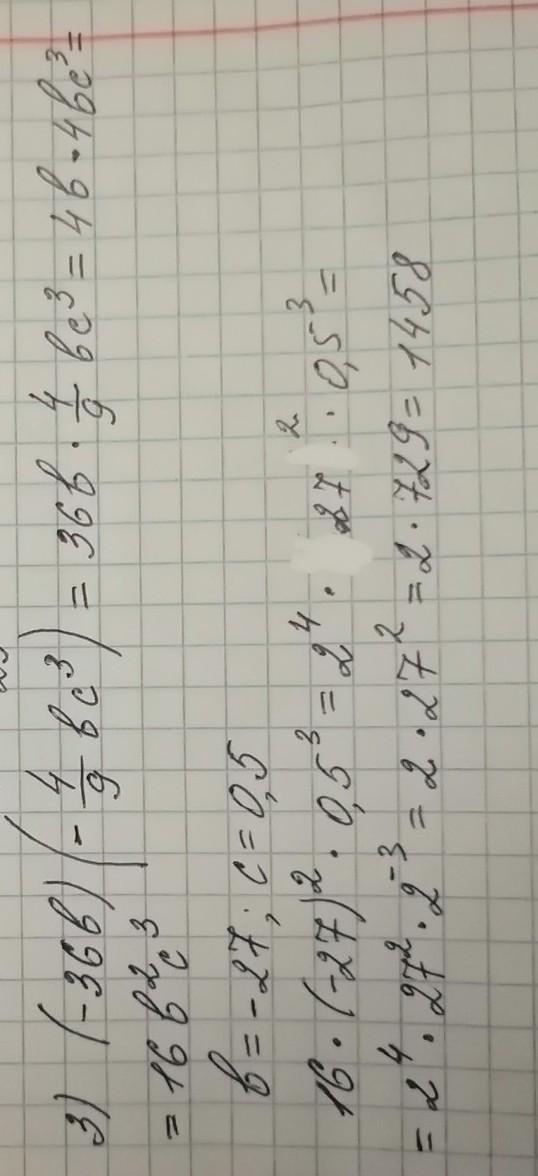 3) (-36b)(-4/9 bc³) = 36b · 4/9 bc³ = 4b · 4bc³ =
= 16b²c³
b = -27; c = 0,5
16 · (-27)² · 0,5³ = 2⁴ · 27² · 0,5⁻³ =
= 2⁴ · 27² · 2⁻³ = 2 · 27² = 2 · 729 = 1458